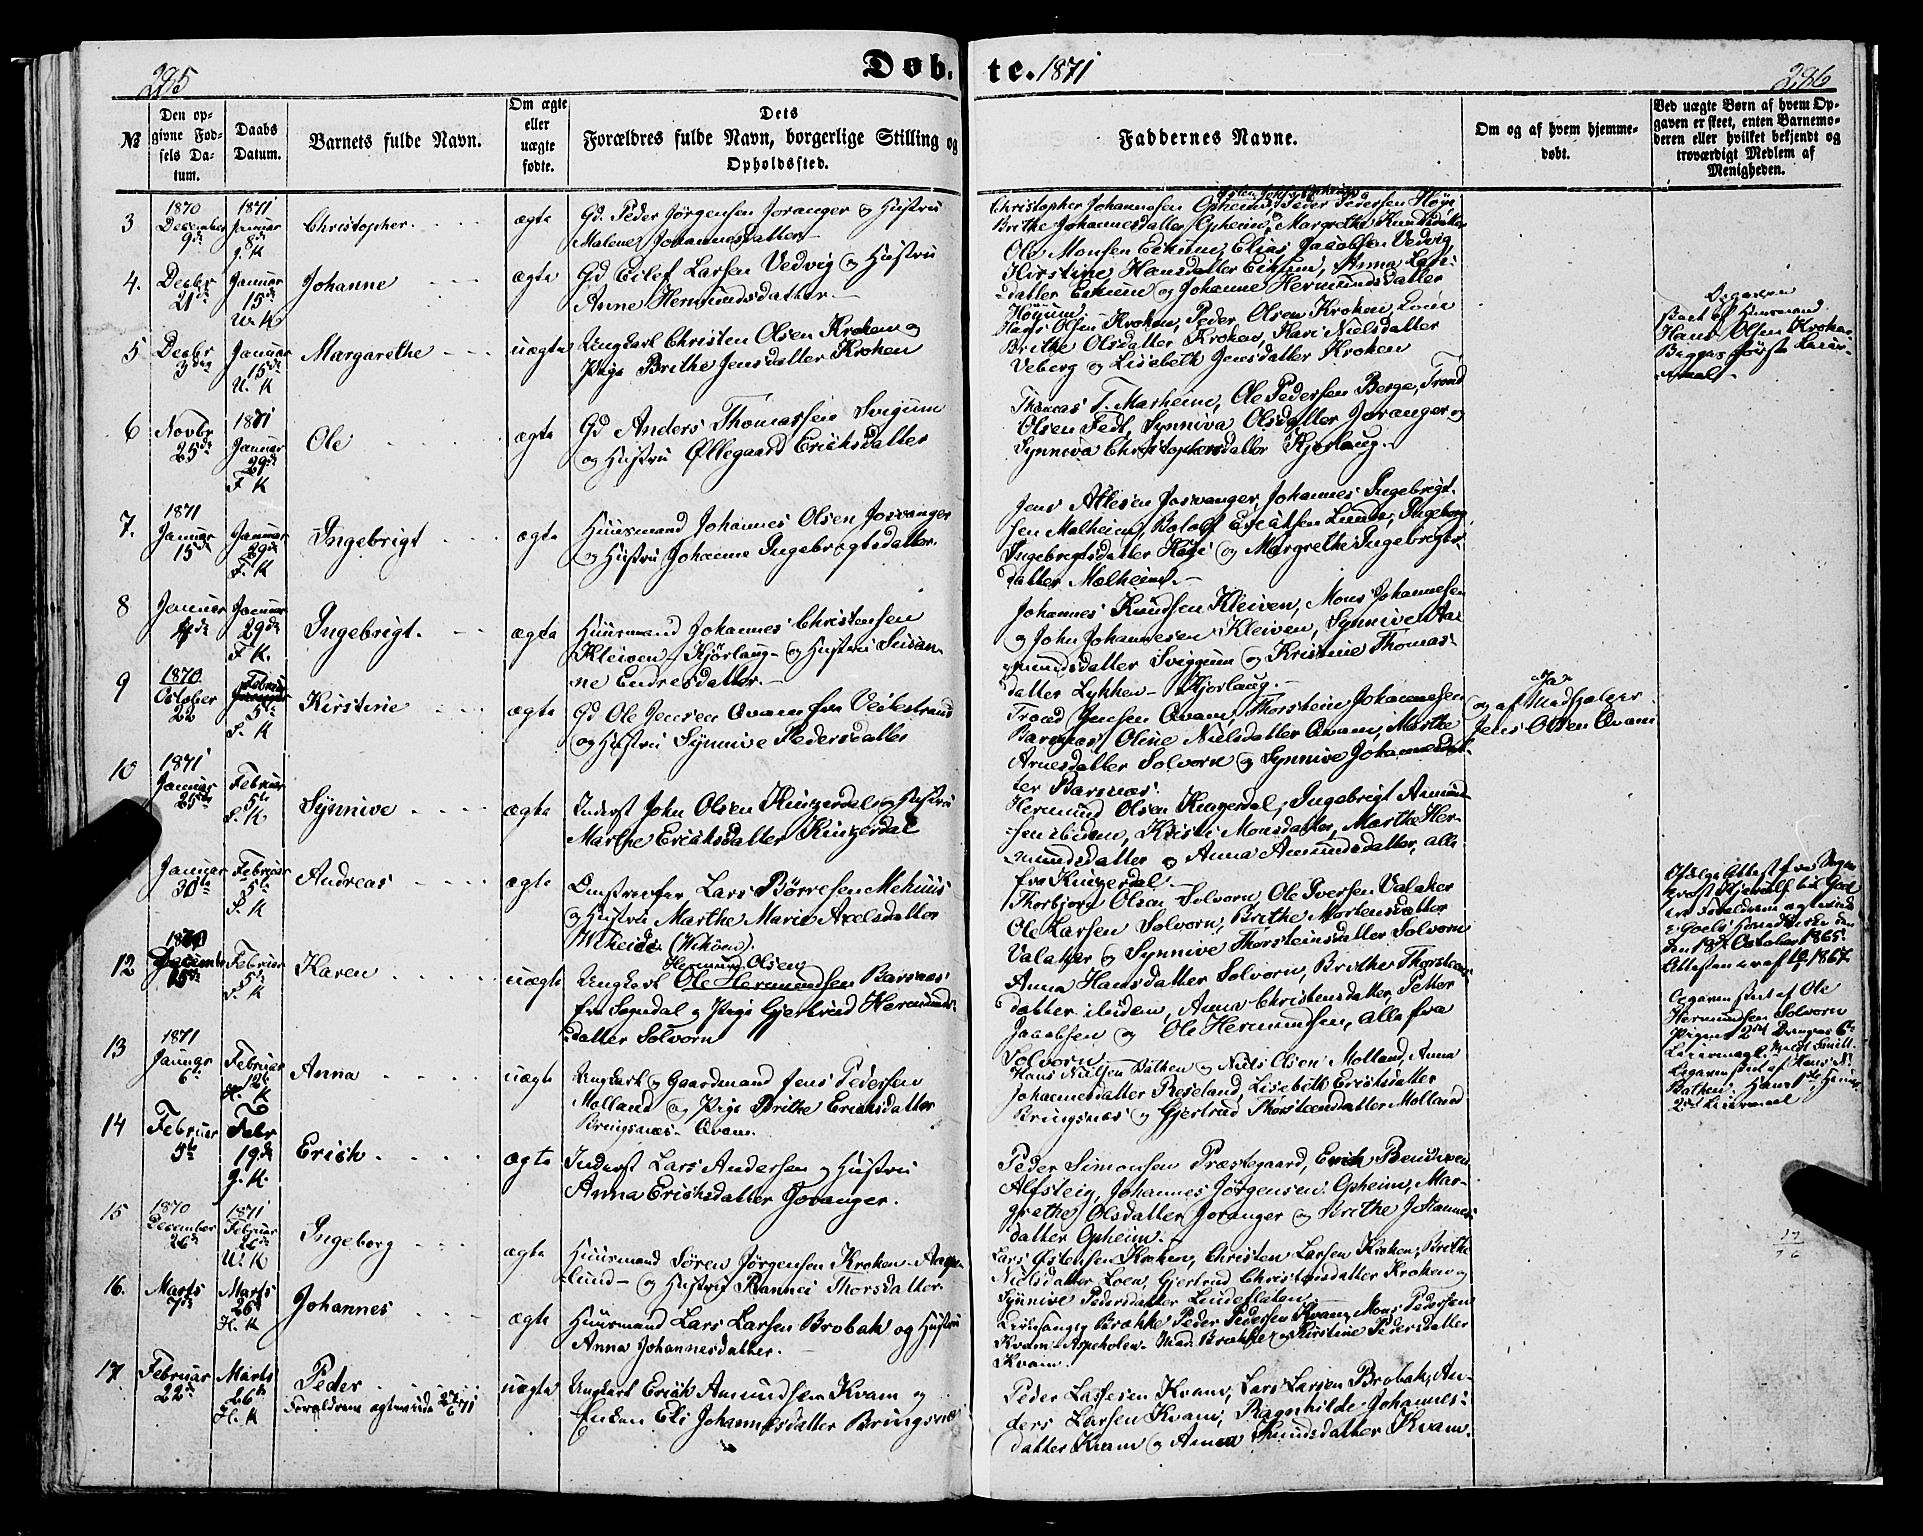 285
Døb-
te. 1871
286
№
Den op-
givne Fød-
sels Da-
tum.
Daabs
Datum.
Barnets fulde Navn.
Om ægte
eller
uægte
fødte.
Dets
Forældres fulde Navn, borgerlige Stilling og
Opholdssted.
Faddernes Navne.
Om og af hvem hjemme-
døbt.
Ved uægte Børn af hvem Op-
gaven er skeet, enten Barnemo-
deren eller hvilket bekjendt og
troværdigt Medlem af
Menigheden.
3
1870
December
9de
1871
Januar
8de
J. K
Christopher
ægte
Gd. Peder Jörgensen Joranger og Hustru
Malene Johannesdatter
Christopher Johannesen Opheim, Peder Pedersen Høye
Brithe Johannesdatter Opheim, Margrethe Knudsdatter
4.
Decbr
21de
Januar
15de
U. K
Johanne
ægte
Gd Eilef Larsen Vedvig og Hustru
Anne Hermundsdatter.
Ole Monsen Eikum, Elias Jacobsen Vedvig,
Kirstine Hansdatter Eikum, Anna Lars-
datter Eikum og Johanne Hermundsdatter
Høyum.
5
Decbr
3die
Januar
15de
U. K
Margarethe
uægte
Ungkarl Christen Olsen Kroken og
Pige Brithe Jensdatter Kroken
Hans Olsen Kroken, Peder Olsen Kroken Loin
Brithe Olsdatter Kroken, Kari Nielsdatter
Veberg og Lisebeth Jensdatter Kroken
Opgaven
skeet af Huusmand
Hans Olsen Kroken
Begges første Leier-
maal
6
Novbr
25de
1871
Januar
29de
F K
Ole
ægte
Gd Anders Thomassen Svigum
og Hustru Øllegaard Eriksdatter
Thomas T. Marheim, Ole Pedersen Berge, Trond
Olsen Fedt, Synniva Olsdatter Joranger og
Synniva Christophersdatter Kjørlaug.
7.
1871
Januar
15de
Januar
29de
F. K
Ingebrigt
ægte
Huusmand Johannes Olsen Josvanger
og Hustru Johanne Ingebrigtsdatter.
Jens Attesen Josvanger, Johannes Ingebrigt-
sen Malheim, Rolof Ericksen Lunde, Ingeborg
Ingebrigtsdatter Høge og Margrethe Ingebrigts-
datter Malheim.
8
Januar
4de
Januar
29de
F K.
Ingebrigt.
ægte
Huusmand Johannes Christensen
Kleiven Kjørlaug og Hustru Susan-
ne Endresdatter.
Johannes Knudsen Kleiven, Mons Johannesen
og John Johannesen Kleiven, Synnive Aa-
mundsdatter Sviggum og Kristine Thomas-
datter Lykken Kjorlaug.
9
1870
October
22
Februar
5te
S. K
Kirstine
ægte
Gd Ole Jensen Qvam fra Veitestrand
og Hustru Synnive Pedersdatter
Trond Jensen Qvam, Thorstein Johannesen
Barsnes, Oline Nielsdatter Qvam, Marthe
Arnesdatter Solvorn og Synnive Johannesdat-
ter Barsnes.
Ja
og af Medhjelper
Jens Olsen Qvam
10
1871
Januar
25de
Februar
5te
S. K
Synnive
ægte
Inderst John Olsen Kinzerdal og Hustru
Marthe Ericksdatter Kinzerdal
Hermund Olsen Kinzerdal, Ingebrigt Amund-
sen ibidem, Kristi Monsdatter, Marthe Her-
mundsdatter og Anna Amundsdatter, alle
fra Kinzerdal
Januar
30te
Februar
5te
S. K
Andreas
ægte
Omstreifer Lars Börresen Mehuus
og Hustru Marthe Marie Axelsdatter
Thorbjorn Olsen Solvorn, Ole Iversen Valaker
Ole Larsen Solvorn, Brithe Mortensdatter
Valaker og Synnive Thorsteinsdatter Solvorn
12
1870
15de
Februar
5te
S. K
Karen
uægte
Hermund Olsen
Ungkarl Ole Hermundsen Barsnes
fra Sogndal og Pige Gjertrud Hermunds-
datter Solvorn
Anna Hansdatter Solvorn, Brithe Thorsteins-
datter ibidem, Anna Christensdatter, Petter
Jacobsen og Ole Hermundsen, alle fra
Solvorn
Opgaven skeet af Ole
Hermundsen Solvorn
13
1871
Januar
6te
Februar
12te
K
Anna
uægte
Ungkarl og Gaardmand Jens Pedersen
Molland og Pige Brithe Ericksdatter
Bringsnæs Qvam.
Hans Nielsen Bathen og Niels Olsen Molland, Anna
Johannesdatter Reseland, Lisebeth Ericksdatter
Bringsnæs og Gjertrud Thorsteensdatter Molland
14
Februar
5te
Febr
19de
J. K.
Erick
ægte
Inderst Lars Andersen og Hustru
Anna Ericksdatter Joranger.
Peder Simonsen Præstegaard, Erick Bendixen
Alfsteig, Johannes Jörgensen Opheim, Mar-
grethe Olsdatter Joranger og Brithe Johannes-
datter Opheim.
15
1870
December
26de
1871
Februar
26de
U. K
Ingeborg
ægte
Huusmand Sören Jörgensen Kroken
lund og Hustru Rannei Thorsdatter
Lars Østensen Kroken, Christen Larsen Kroken, Brithe
Nielsdatter Loen, Gjertrud Christensdatter Kroken og
Synnive Pedersdatter Lindeflaten.
16.
Marts
7de
Marts
26de
H. K
Johannes
ægte
Huusmand Lars Larsen Brobak og Hustru
Anna Johannesdatter.
Brække Peder Pedersen Kvam, Mons Pedersen
Kvam Aspeholen Mad. Brække og Kirstine Pedersdatter
Kvam.
17
Februar
22de
Marts
26de
H. K
Peder
Forældrene ægteviede 27/6 71
uægte
Ungkarl Erick Amundsen Kvam og
Enken Eli Johannesdatter Bringsnæs
Peder Lassesen Kvam, Lars Larsen Brobak, An-
ders Larsen Kvam, Ragnhilde Johannes-
datter Kvam og Anna Knudsdatter Kvam.